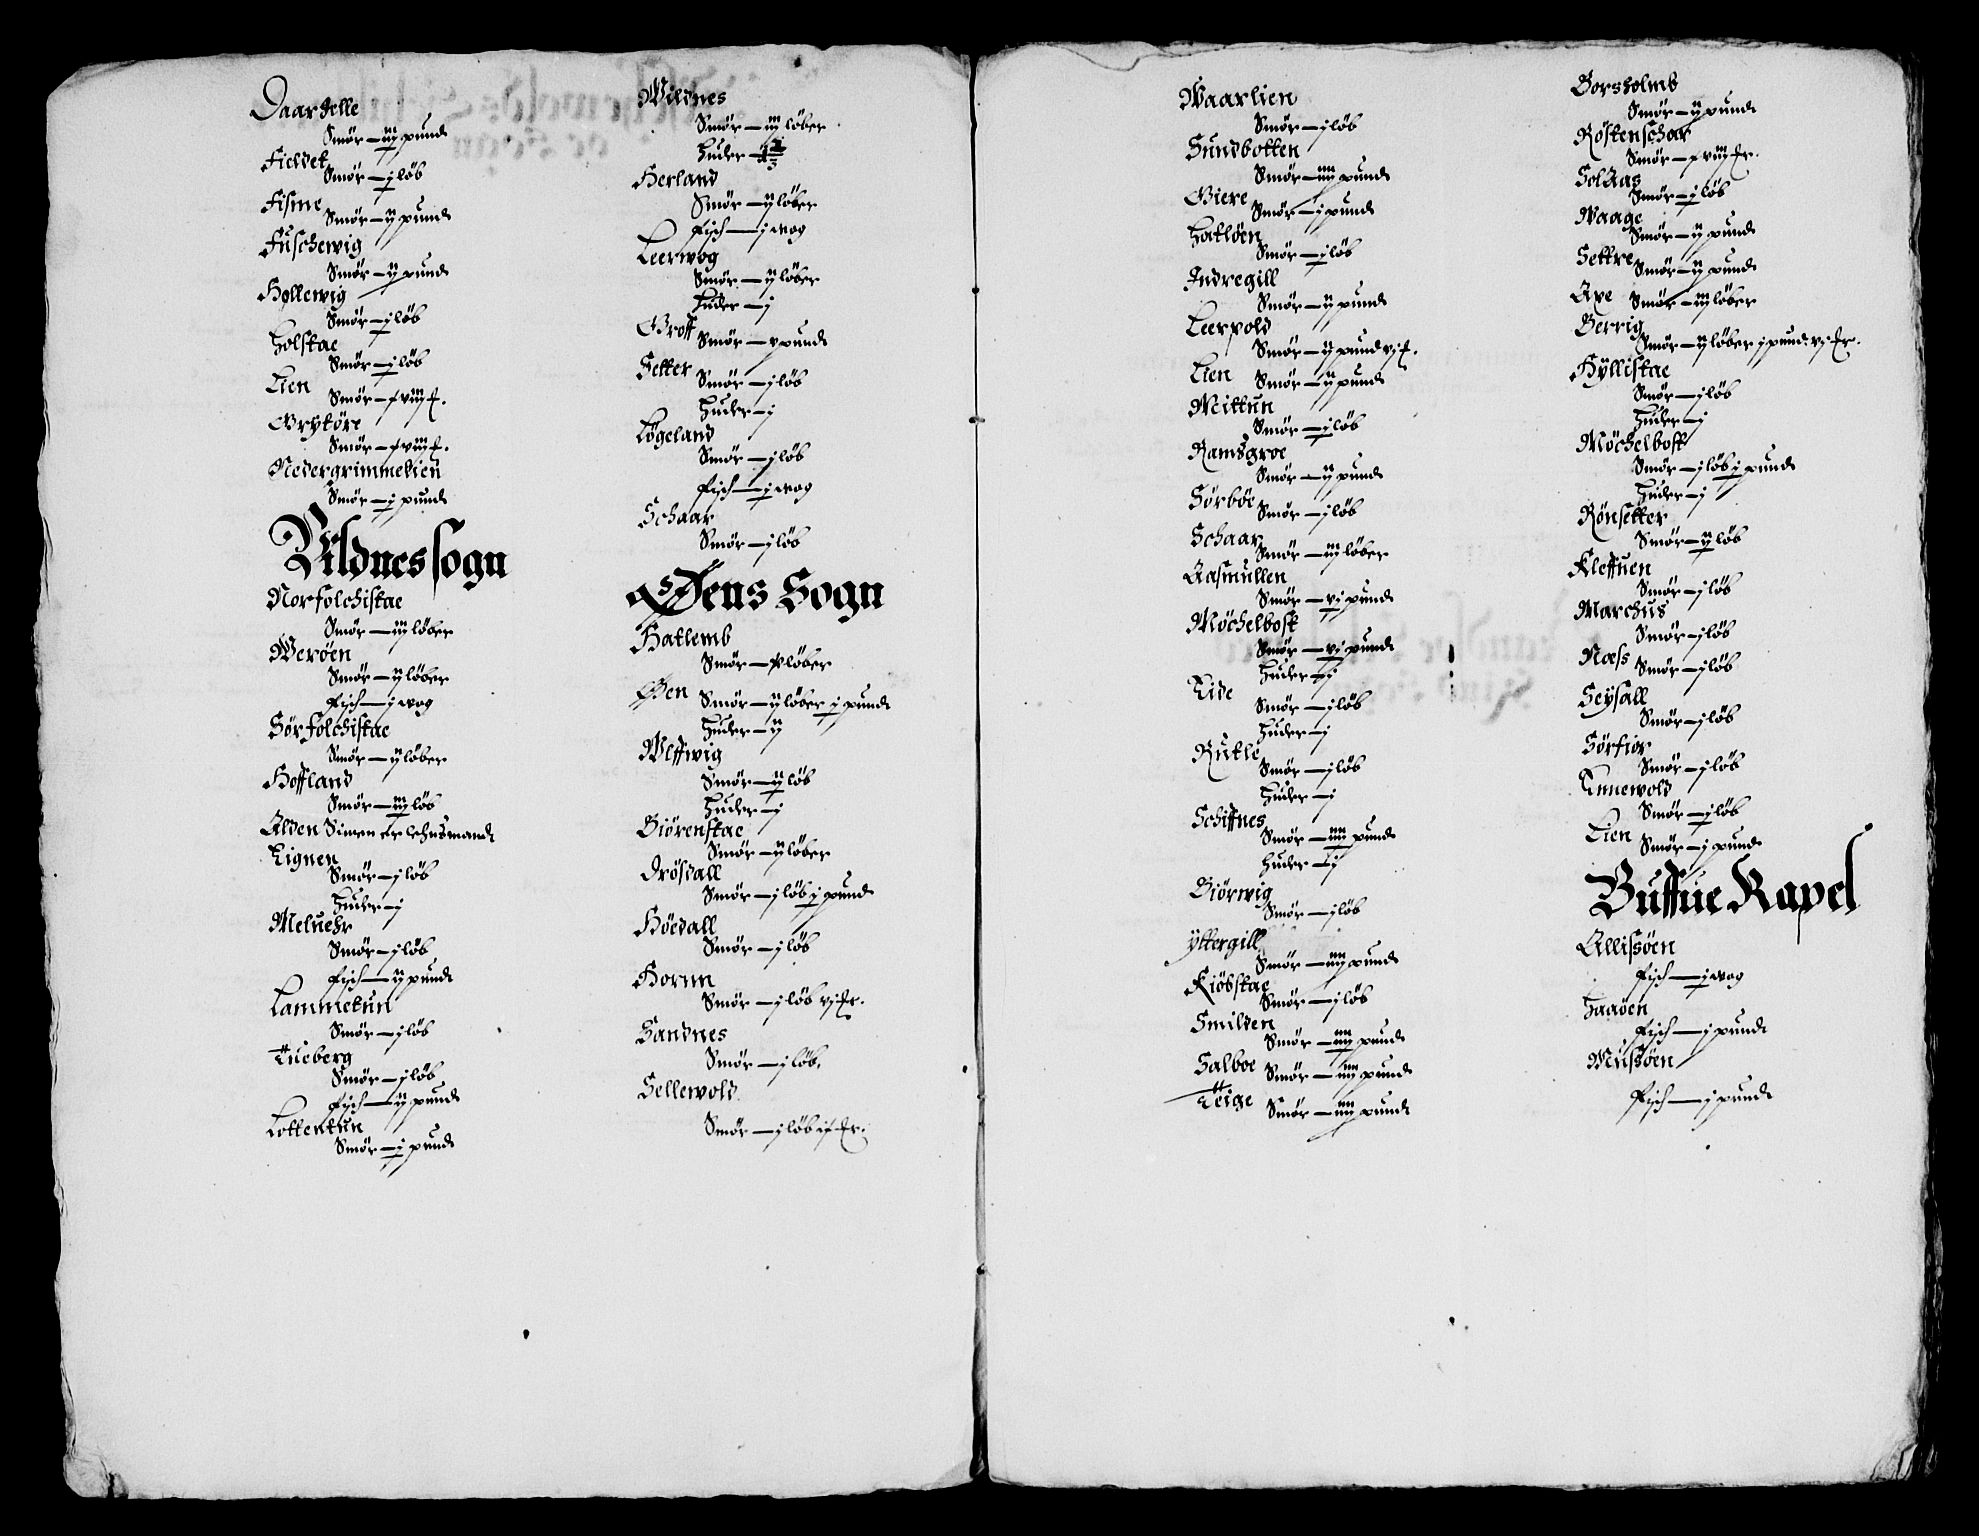 Daardelle
Smör — iij pund
Fieldet
Smör — j löb
Fisme
Smör — ij pund
Fuschewig
Smör — ij pund
Hollewig
Smör — j löb
Holstae
Smör — j löb
Lien
Smör —
Grytöre
Smör —
Nedergrimmelien
Smör — j pund
Vildnes sogn
Norfolchistae
Smör — iij löber
Weröen
Smör — ij löber
Fisch — j wog
Sörfolchistae
Smör — ij löber
Hoffland
Smör — iij löb
Alden Simen er lehnsmand
Eignen
Smör — j löb
Huder — j
Meluehr
Smör — j löb
Fisch — ij pund
Lammetun
Smör — j löb
Tueberg
Smör — j löb
Fisch — ij pund
Lottentun
Smör — j pund
Wildnes
Smör — iij löber
Huder —
Herland
Smör — ij löber
Fisch — j wog
Leerwog
Smör — ij löber
Huder — j
Groff
Smör — v pund
Setter
Smör — j löb
Huder — j
Lögeland
Smör — j löb
Fisch — j wog
Schaar
Smör — j löb
Øens Sogn
Hatlemb
Smör — löber
Øen Smör — ij löber j pund
Huder — ij
Wlffwig
Smör — ij löb
Huder — j
Biörenstae
Smör — ij löber
Drösdall
Smör — j löb j pund
Höedall
Smör — j löb
Hornn
Smör — j löb vj Er.
Sandnes
Smör — j löb.
Sellewold
Smör — j löb ix Er.
Waarlien
Smör — j löb
Sundbotten
Smör — iiij pund
Giere
Smör — j pund
Hatlöen
Smör — j löb
Indregill
Smör — ij pund
Leerpold
Smör — ij pund vj E.
Lien Smör — ij pund
Mittun
Smör — j löb
Ramsgroe
Smör — ij pund
Sörböe
Smör — j löb
Schaar
Smör — iij löber
Aasmullen
Smör — vj pund
Möchelbost
Smör — vj pund
Huder — j
Eide
Smör — j löb
Huder — j
Rutle
Smör — j löb
Huder — j
Schiffnes
Smör — iiij pund
Huder — j
Biörwig
Smör — j löb
Yttergill
Smör — iiij pund
Kiöbstae
Smör — j löb
Smilden
Smör — iiij pund
Salboe Smör — iiij pund
Teige Smör — iiij pund
Borsholmb
Smör — ij pund
Röstenschar
Smör — Er.
SolAas
Smör — j löb
Waage
Smör — ij pund
Settre
Smör — ij pund
Axe Smör — iij löber
Berrig
Smör — ij löber j pund vj Er.
Hyllistae
Smör — j löb
Huder — j
Möchelbost
Smör — j löb j pund
Huder — j
Rönsetter
Smör — ij löb
Kleffuen
Smör — j löb
Marchus
Smör — j löb
Næss Smör — j löb
Seysall
Smör — j löb
Sörfior
Smör — j löb
Ennewold
Smör — j löb
Lien Smör — j pund
Buffue Kapel
Allissöen
Fisch — j wog
Haaöen
Fisch — j pund
Mussöen
Fisch — j pund